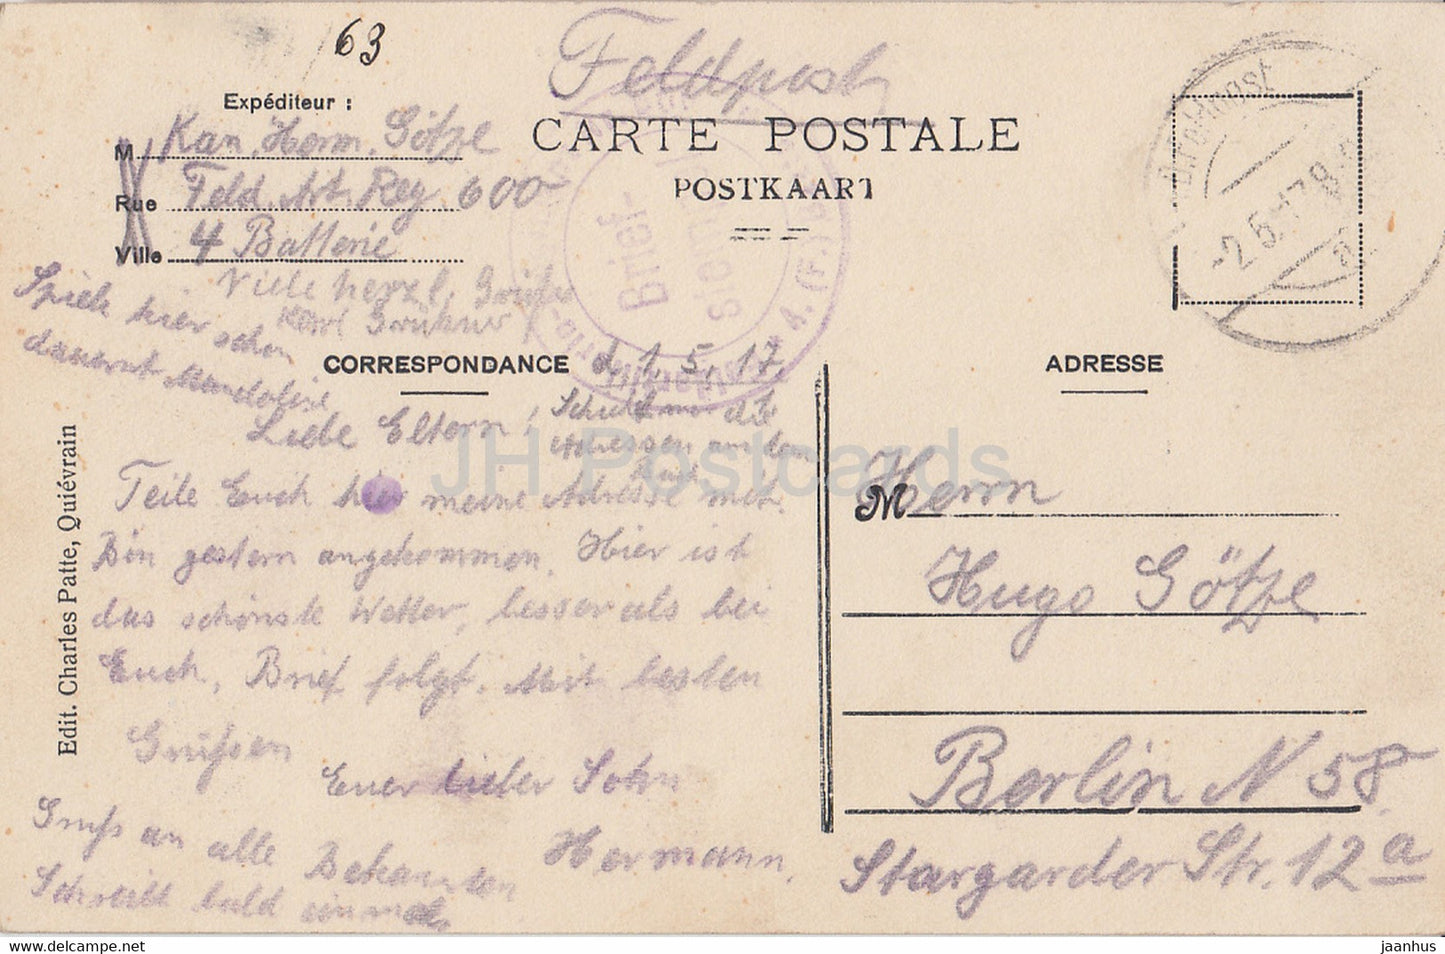 63
Feldpost
CARTE POSTALE
POSTKAART
Expéditeur :
M Kan. Herm. Götze
Rue Feld. Art. Reg 600
Ville 4 Batterie
Viele herzl. Grüße
Karl
Spielt hier schon
dauernd Mandoline
Brief-
A. (F.)
Feldpost
-2.5.17.
CORRESPONDANCE
d. 1. 5. 17.
Liebe Eltern!
Adressen an dem
Teile Euch hier meine Adresse mit.
Bin gestern angekommen. Hier ist
das schönste Wetter, besser als bei
Euch, Brief folgt. Mit besten
Grüßen
Euer lieber Sohn
Hermann.
Gruß an alle Bekannten
Schreibt bald einmal.
ADRESSE
M Herrn
Hugo Götze
Berlin N 58.
Stargarder Str. 12a
Edit. Charles Patte, Quiévrain
JH Postcards
www.delcampe.net
jaanhus